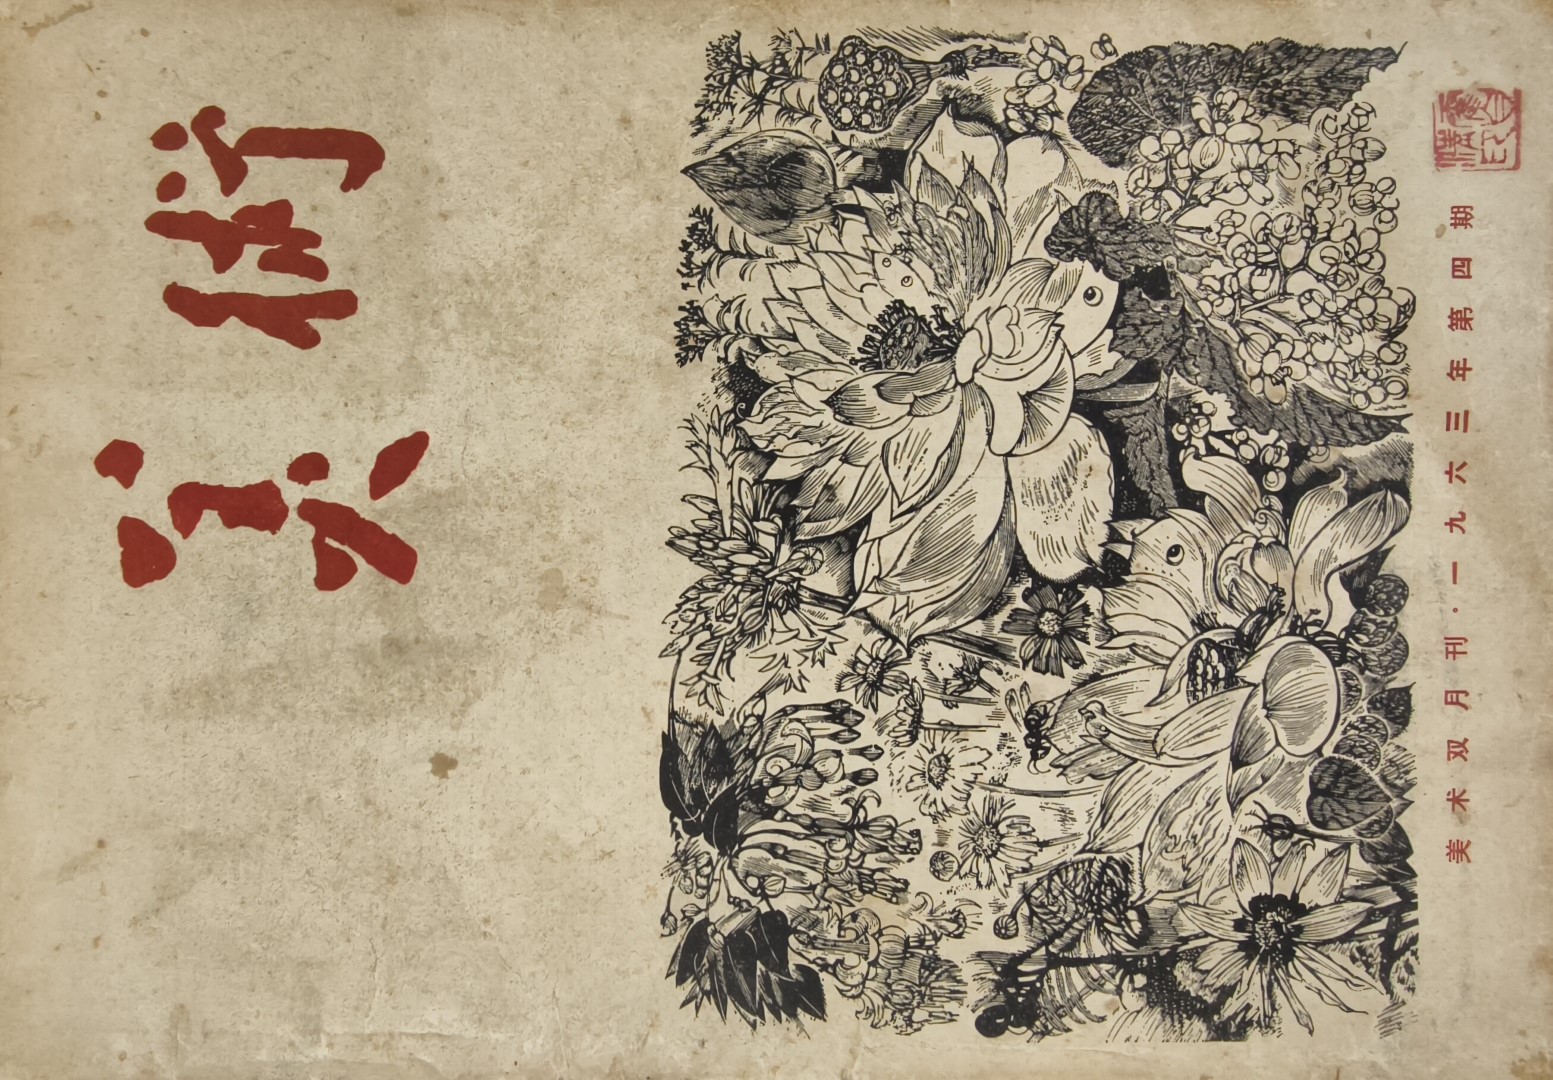 美術
美术双月刊·一九六三年第四期